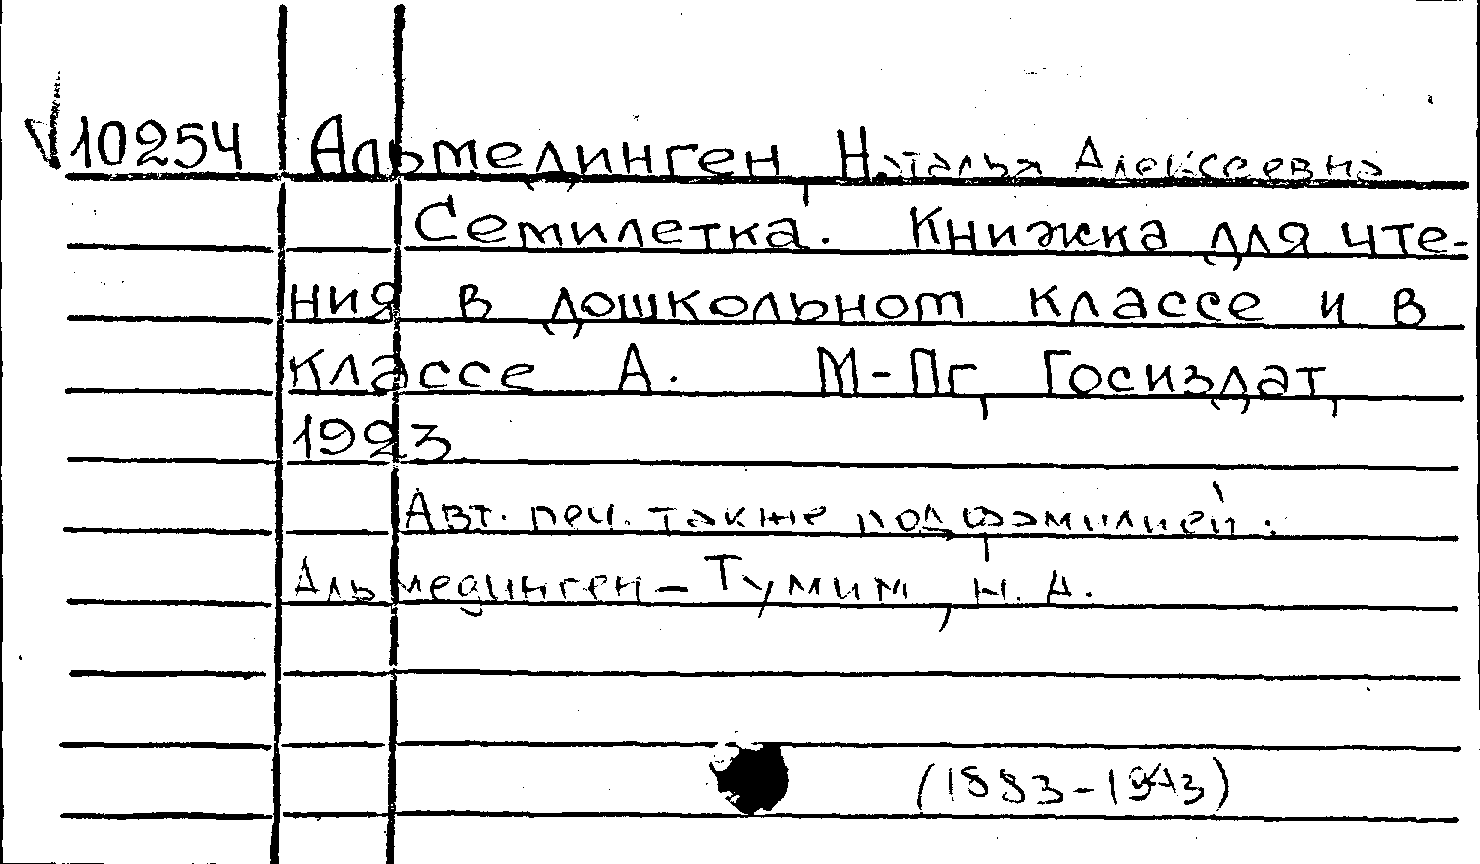 √10254 Альмединген, Наталья Алексеевна
Семилетка. Книжка для чте-
ния в дошкольном классе и в
классе А. М-Пг, Госиздат,
1923
Авт. печ. также под фамилией:
Альмединген-Тумим, Н. А.
(1883-1943)